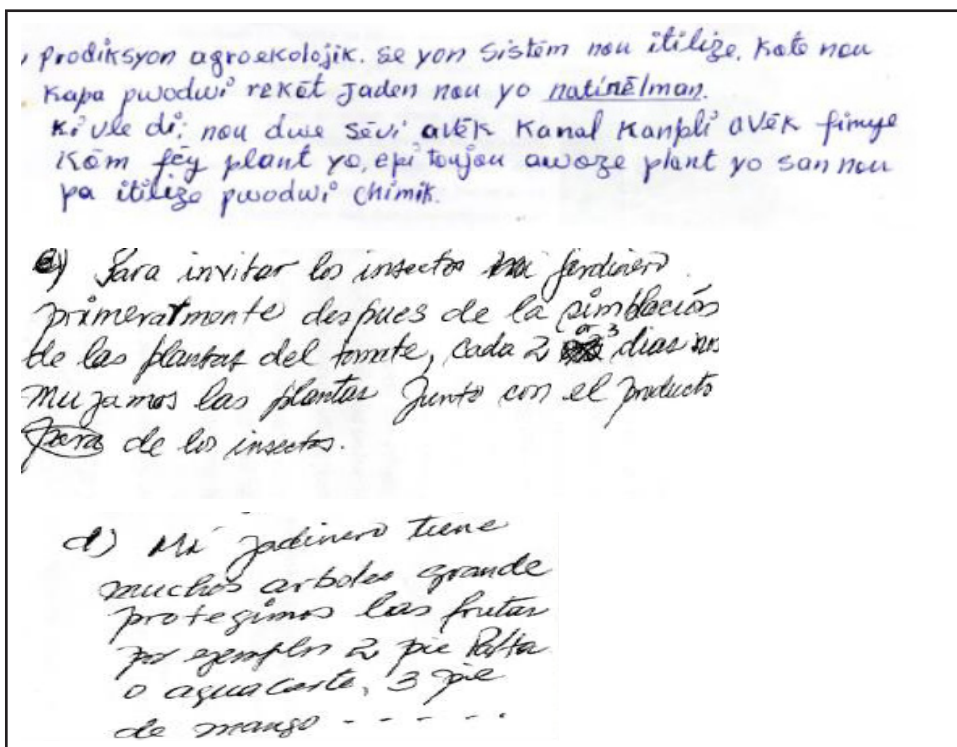 Prodiksyon agroekolojik. se yon sistèm nou itilize, kote nou
kapa pwodwi rekòt Jaden nou yo natirèlman.
Ki vle di; nou dwe sèvi avèk kanal kanpli avèk fimye
Kòm fèy plant yo, epi toujou awoze plant yo san nou
pa itilize pwodwi chimik.
e) Para invitar los insectos mi jardinero
primeratmente despues de la simblación
de las plantas del tomate, cada 2 or 3 dias nos
mujamos las plantas junto con el producto
para de los insectos.
d) Mi jadinero tiene
muchos arboles grande
protegimos las frutas
por ejemplo 2 pie Palta
o aguacaste, 3 pie
de mango - - - - - .